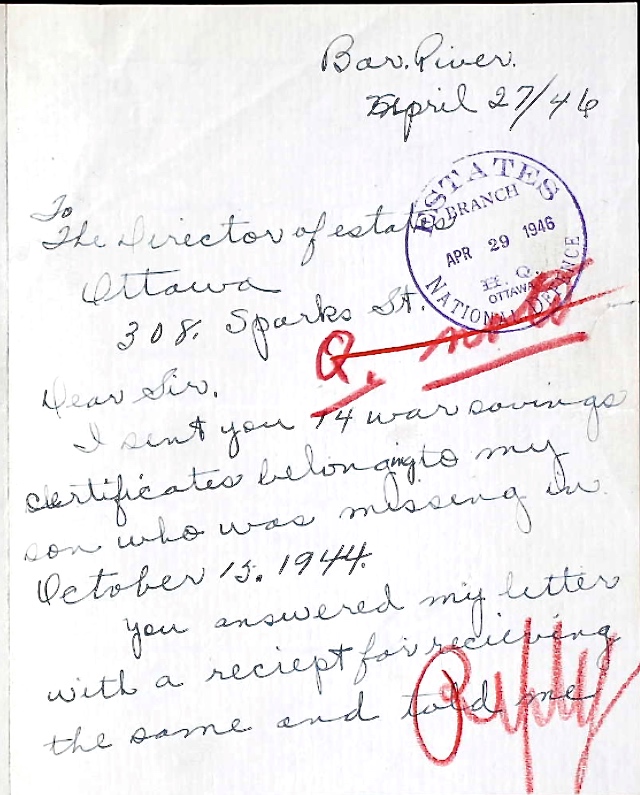 Bar. River.
April 27/46
To
The Director of estates
Ottawa
308. Sparks St.
ESTATES
BRANCH
APR 29 1946
H. Q.
OTTAWA
NATIONAL DEFENCE
Q.
Dear Sir.
I sent you 14 war savings
certificates belonging to my
son who was missing in
October 15. 1944.
You answered my letter
with a reciept for recieving
the same and told me
Reply